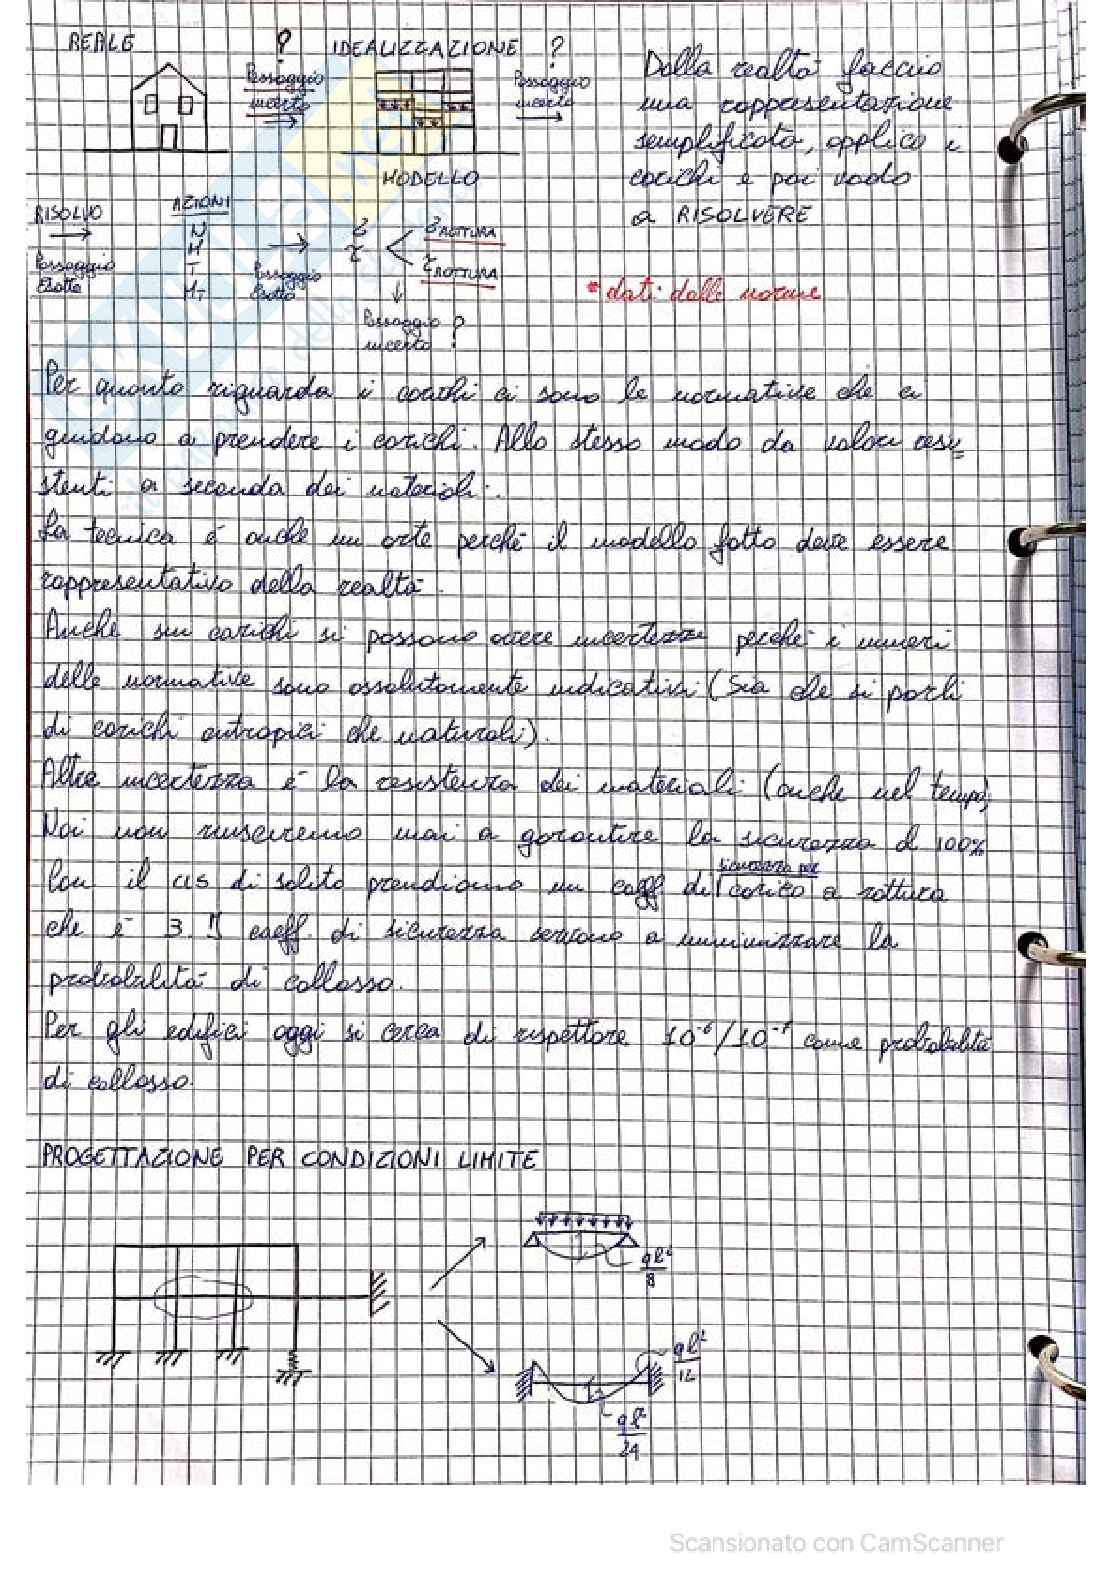 REALE ? IDEALIZZAZIONE ?
Passaggio incerto
Passaggio incerto
MODELLO
Dalla realtà faccio
una rappresentazione
semplificata, applico i
carichi e poi vado
a RISOLVERE
RISOLVO
Passaggio Esatto
AZIONI
N
M
T
MT
Passaggio Esatto
ROTTURA
τ ROTTURA
Passaggio incerto ?
* dati dalle norme
Per quanto riguarda i carichi ci sono le normative che ci
guidano a prendere i carichi. Allo stesso modo da valori resi=
stenti a seconda dei materiali.
La tecnica è anche un arte perché il modello fatto deve essere
rappresentativo della realtà.
Anche sui carichi si possono avere incertezze perché i numeri
delle normative sono assolutamente indicativi (Sia che si parli
di carichi antropici che naturali).
Altra incertezza è la resistenza dei materiali (anche nel tempo)
Noi non riusciremo mai a garantire la sicurezza al 100%
Con il cls di solito prendiamo un coeff di sicurezza per carico a rottura
che è 3. I coeff. di sicurezza servono a minimizzare la
probabilità di collasso.
Per gli edifici oggi si cerca di rispettare 10⁻⁶/10⁻⁷ come probabilità
di collasso.
PROGETTAZIONE PER CONDIZIONI LIMITE
ql²/8
ql²/12
ql²/24
Scansionato con CamScanner